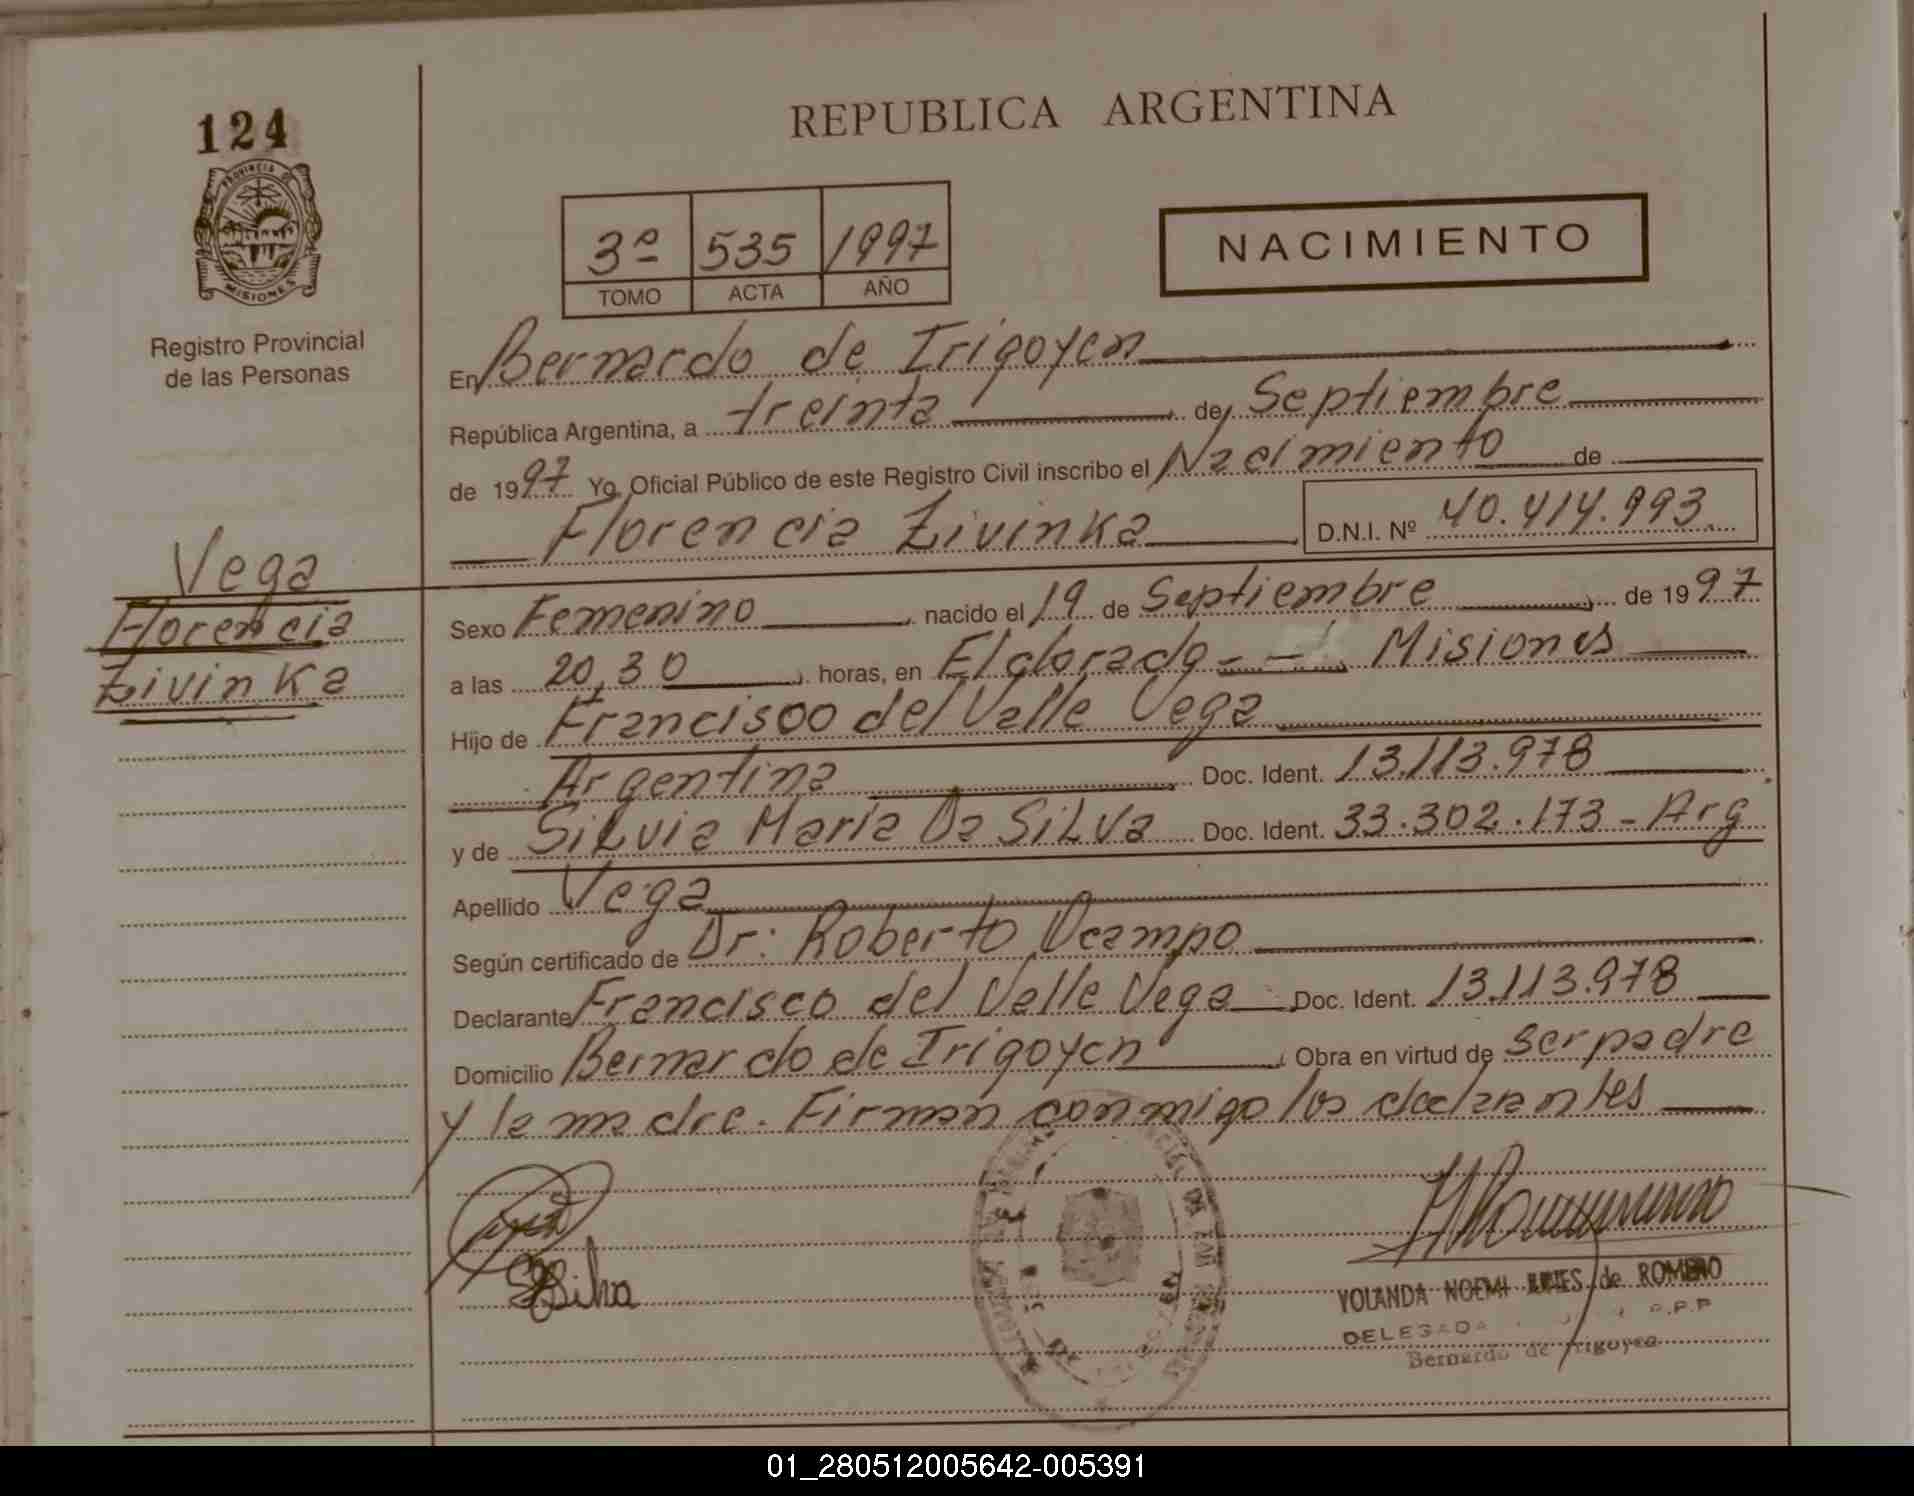 124
PROVINCIA DE
MISIONES
Registro Provincial
de las Personas
Vega
Florencia
Zivinka
REPUBLICA ARGENTINA
3º 535 1997
TOMO ACTA AÑO
NACIMIENTO
En Bernardo de Irigoyen
República Argentina, a treinta de Septiembre
de 1997 Yo, Oficial Público de este Registro Civil inscribo el Nacimiento de
Florencia Zivinka D.N.I. Nº 40.414.993.
Sexo Femenino, nacido el 19 de Septiembre, de 1997
a las 20,30, horas, en Eldorado - - Misiones
Hijo de Francisco del Valle Vega
Argentina, Doc. Ident. 13.113.978
y de Silvia Maria Da Silva Doc. Ident. 33.302.173 - Arg
Apellido Vega
Según certificado de Dr: Roberto Ocampo
Declarante Francisco del Valle Vega, Doc. Ident. 13.113.978
Domicilio Bernardo de Irigoyen, Obra en virtud de ser padre
y la madre. Firman conmigo los declarantes
Silva
YOLANDA NOEMI de ROMERO
DELEGADA R.P.P
Bernardo de Irigoyen
01_280512005642-005391